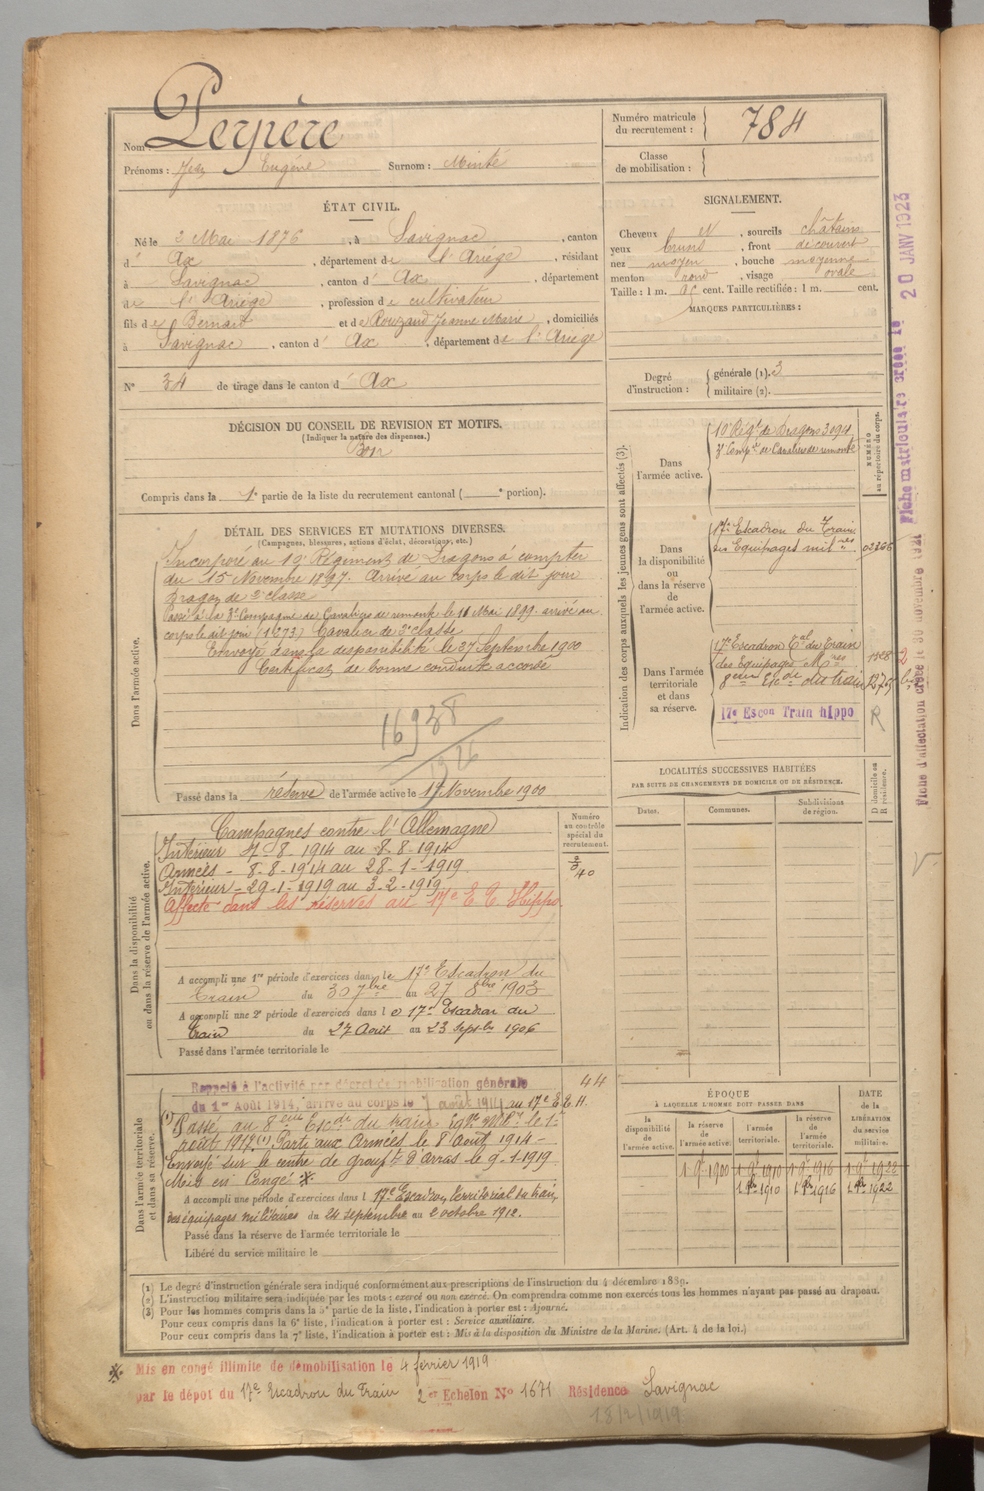 Nom : Perpère
Prénoms : Jean Eugène Surnom : Minté
Numéro matricule du recrutement : 784
Classe de mobilisation :
ÉTAT CIVIL.
Né le 2 Mai 1876, à Savignac, canton
d' Ax, département de l'Ariège, résidant
à Savignac, canton d' Ax, département
de l'Ariège, profession de cultivateur
fils de Bernard et de Rouzaud Jeanne Marie, domiciliés
à Savignac, canton d' Ax, département de l'Ariège
N° 34 de tirage dans le canton d' Ax
SIGNALEMENT.
Cheveux et, sourcils châtains
yeux bruns, front découvert
nez moyen, bouche moyenne
menton rond, visage ovale
Taille : 1 m. cent. Taille rectifiée : 1 m. cent.
MARQUES PARTICULIÈRES :
Degré d'instruction : générale (1). 3
militaire (2).
DÉCISION DU CONSEIL DE REVISION ET MOTIFS.
(Indiquer la nature des dispenses.)
Bon
Compris dans la 1e partie de la liste du recrutement cantonal ( e portion).
DÉTAIL DES SERVICES ET MUTATIONS DIVERSES.
(Campagnes, blessures, actions d'éclat, décorations, etc.)
Dans l'armée active.
Incorporé au 10e Régiment de Dragons à compter
du 15 Novembre 1897. Arrivé au corps le dit jour
Dragon de 2e classe
Passé à la 3e Compagnie de Cavaliers de remonte le 11 Mai 1899. arrivé au
corps le dit jour (1.273) Cavalier de 2e classe
Envoyé dans la disponibilité le 27 Septembre 1900
Certificat de bonne conduite accordé
16938
Passé dans la réserve de l'armée active le 1er Novembre 1900
Indication des corps auxquels les jeunes gens sont affectés (3).
NUMÉRO au répertoire du corps.
Dans l'armée active.
10e Régt de Dragons 3094
3e Compie de Cavaliers de remonte
Dans la disponibilité ou dans la réserve de l'armée active.
17e Escadron du Train
des Equipages mil res 02366
Dans l'armée territoriale et dans sa réserve.
17e Escadron Tal du Train
des Equipages Mres
8eme Escon du train
17e Escon Train hippo R
LOCALITÉS SUCCESSIVES HABITÉES
PAR SUITE DE CHANGEMENTS DE DOMICILE OU DE RÉSIDENCE.
Dates. Communes. Subdivisions de région. D domicile ou R résidence.
Dans la disponibilité ou dans la réserve de l'armée active.
Numéro au contrôle spécial du recrutement.
Campagnes contre l'Allemagne
Intérieur 4-8-1914 au 8-8-1914
Armées - 8-8-1914 au 28-1-1919
Intérieur - 29-1-1919 au 3-2-1919
Affecté dans les réserves au 17e E T Hippo
A accompli une 1re période d'exercices dans le 17e Escadron du
Train du 30 7bre au 27 8bre 1903
A accompli une 2e période d'exercices dans le 17e Escadron du
train du 27 Août au 23 Septbre 1906
Passé dans l'armée territoriale le
Dans l'armée territoriale et dans sa réserve.
Rappelé à l'activité par décret de mobilisation générale 44
du 1er Août 1914, arrivé au corps le août 1914 au 17e E.T.H.
Passé au 8eme Escon du train le 1er
août 1917. (1) Parti aux Armées le 8 Août 1914 -
Envoyé sur le centre de groupt d'Arras le 9-1-1919
Mis en Congé ※
A accompli une période d'exercices dans l 17e Escadron territorial du train
des équipages militaires du 24 septembre au 2 octobre 1912.
Passé dans la réserve de l'armée territoriale le
Libéré du service militaire le
ÉPOQUE
À LAQUELLE L'HOMME DOIT PASSER DANS
DATE de la LIBÉRATION du service militaire.
la disponibilité de l'armée active. la réserve de l'armée active. l'armée territoriale. la réserve de l'armée territoriale.
1 9bre 1900 1 9bre 1910 1 9bre 1916 1 9bre 1922
1 8bre 1910 1 8bre 1916 1 8bre 1922
(1) Le degré d'instruction générale sera indiqué conformément aux prescriptions de l'instruction du 4 décembre 1889.
(2) L'instruction militaire sera indiquée par les mots : exercé ou non exercé. On comprendra comme non exercés tous les hommes n'ayant pas passé au drapeau.
(3) Pour les hommes compris dans la 5e partie de la liste, l'indication à porter est : Ajourné.
Pour ceux compris dans la 6e liste, l'indication à porter est : Service auxiliaire.
Pour ceux compris dans la 7e liste, l'indication à porter est : Mis à la disposition du Ministre de la Marine. (Art. 4 de la loi.)
※ Mis en congé illimité de démobilisation le 4 février 1919
par le dépôt du 17e Escadron du Train 2er Echelon N° 1671 Résidence Savignac
18/2/1919
Fiche matriculaire créée le 20 JANV 1923
Fiche d'affectation créée le 30 novembre 1921